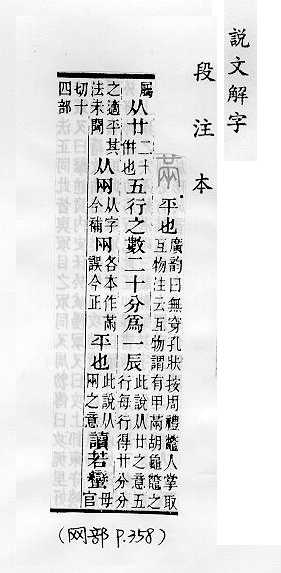 說文解字
段注本
㒼 平也 廣韵曰無穿孔狀按周禮鼈人掌取互物注云互物謂有甲㒼胡龜鼈之
屬 从廿 二十併也 五行之數二十分爲一辰 此說从廿之意五行每行得廿分分
之適平其法未聞 从㒳 从字今補 㒳 各本作㒼誤今正 平也 此說从㒳之意 讀若蠻 毋官
切十四部
(网部 P.358)